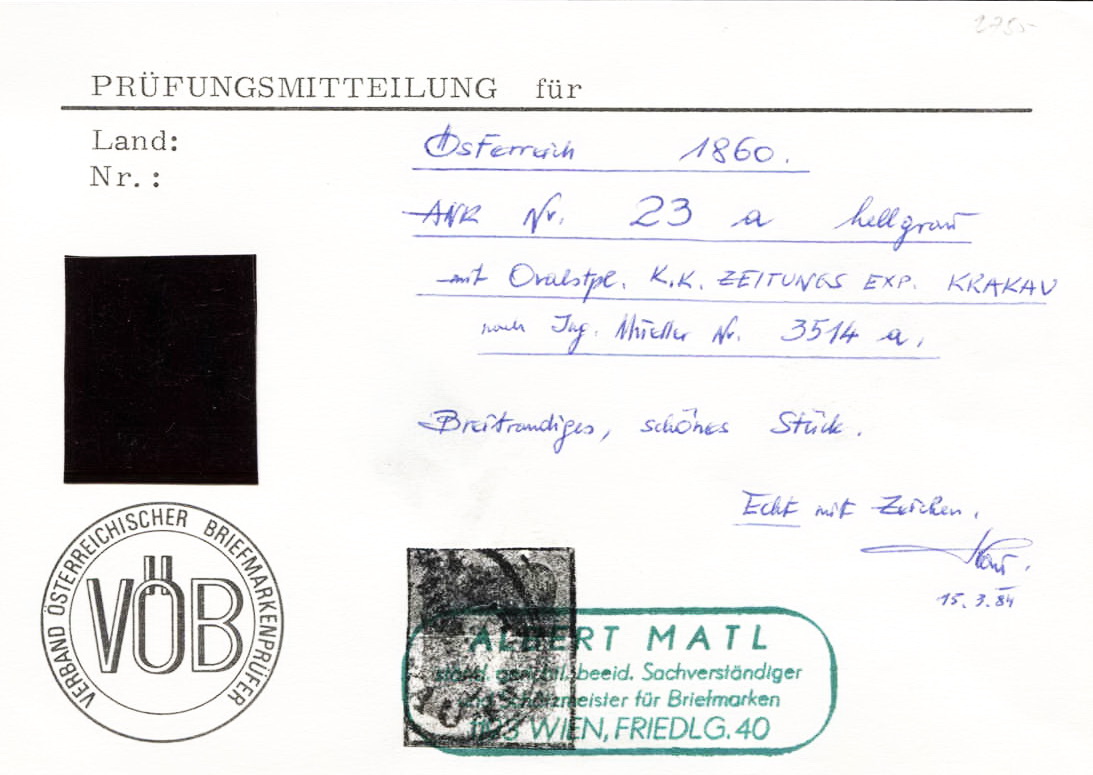 2795-
PRÜFUNGSMITTEILUNG für
Land:
Österreich 1860.
Nr.:
ANK Nr. 23 a hellgrau
mit Ovalstpl. K.K. ZEITUNGS EXP. KRAKAU
nach Ing. Müller Nr. 3514 a.
Breitrandiges, schönes Stück.
Echt mit Zeichen.
15. 3. 84
VERBAND ÖSTERREICHISCHER BRIEFMARKENPRÜFER
VÖB
ALBERT MATL
ständ. gerichtl. beeid. Sachverständiger
und Schätzmeister für Briefmarken
WIEN, FRIEDLG. 40